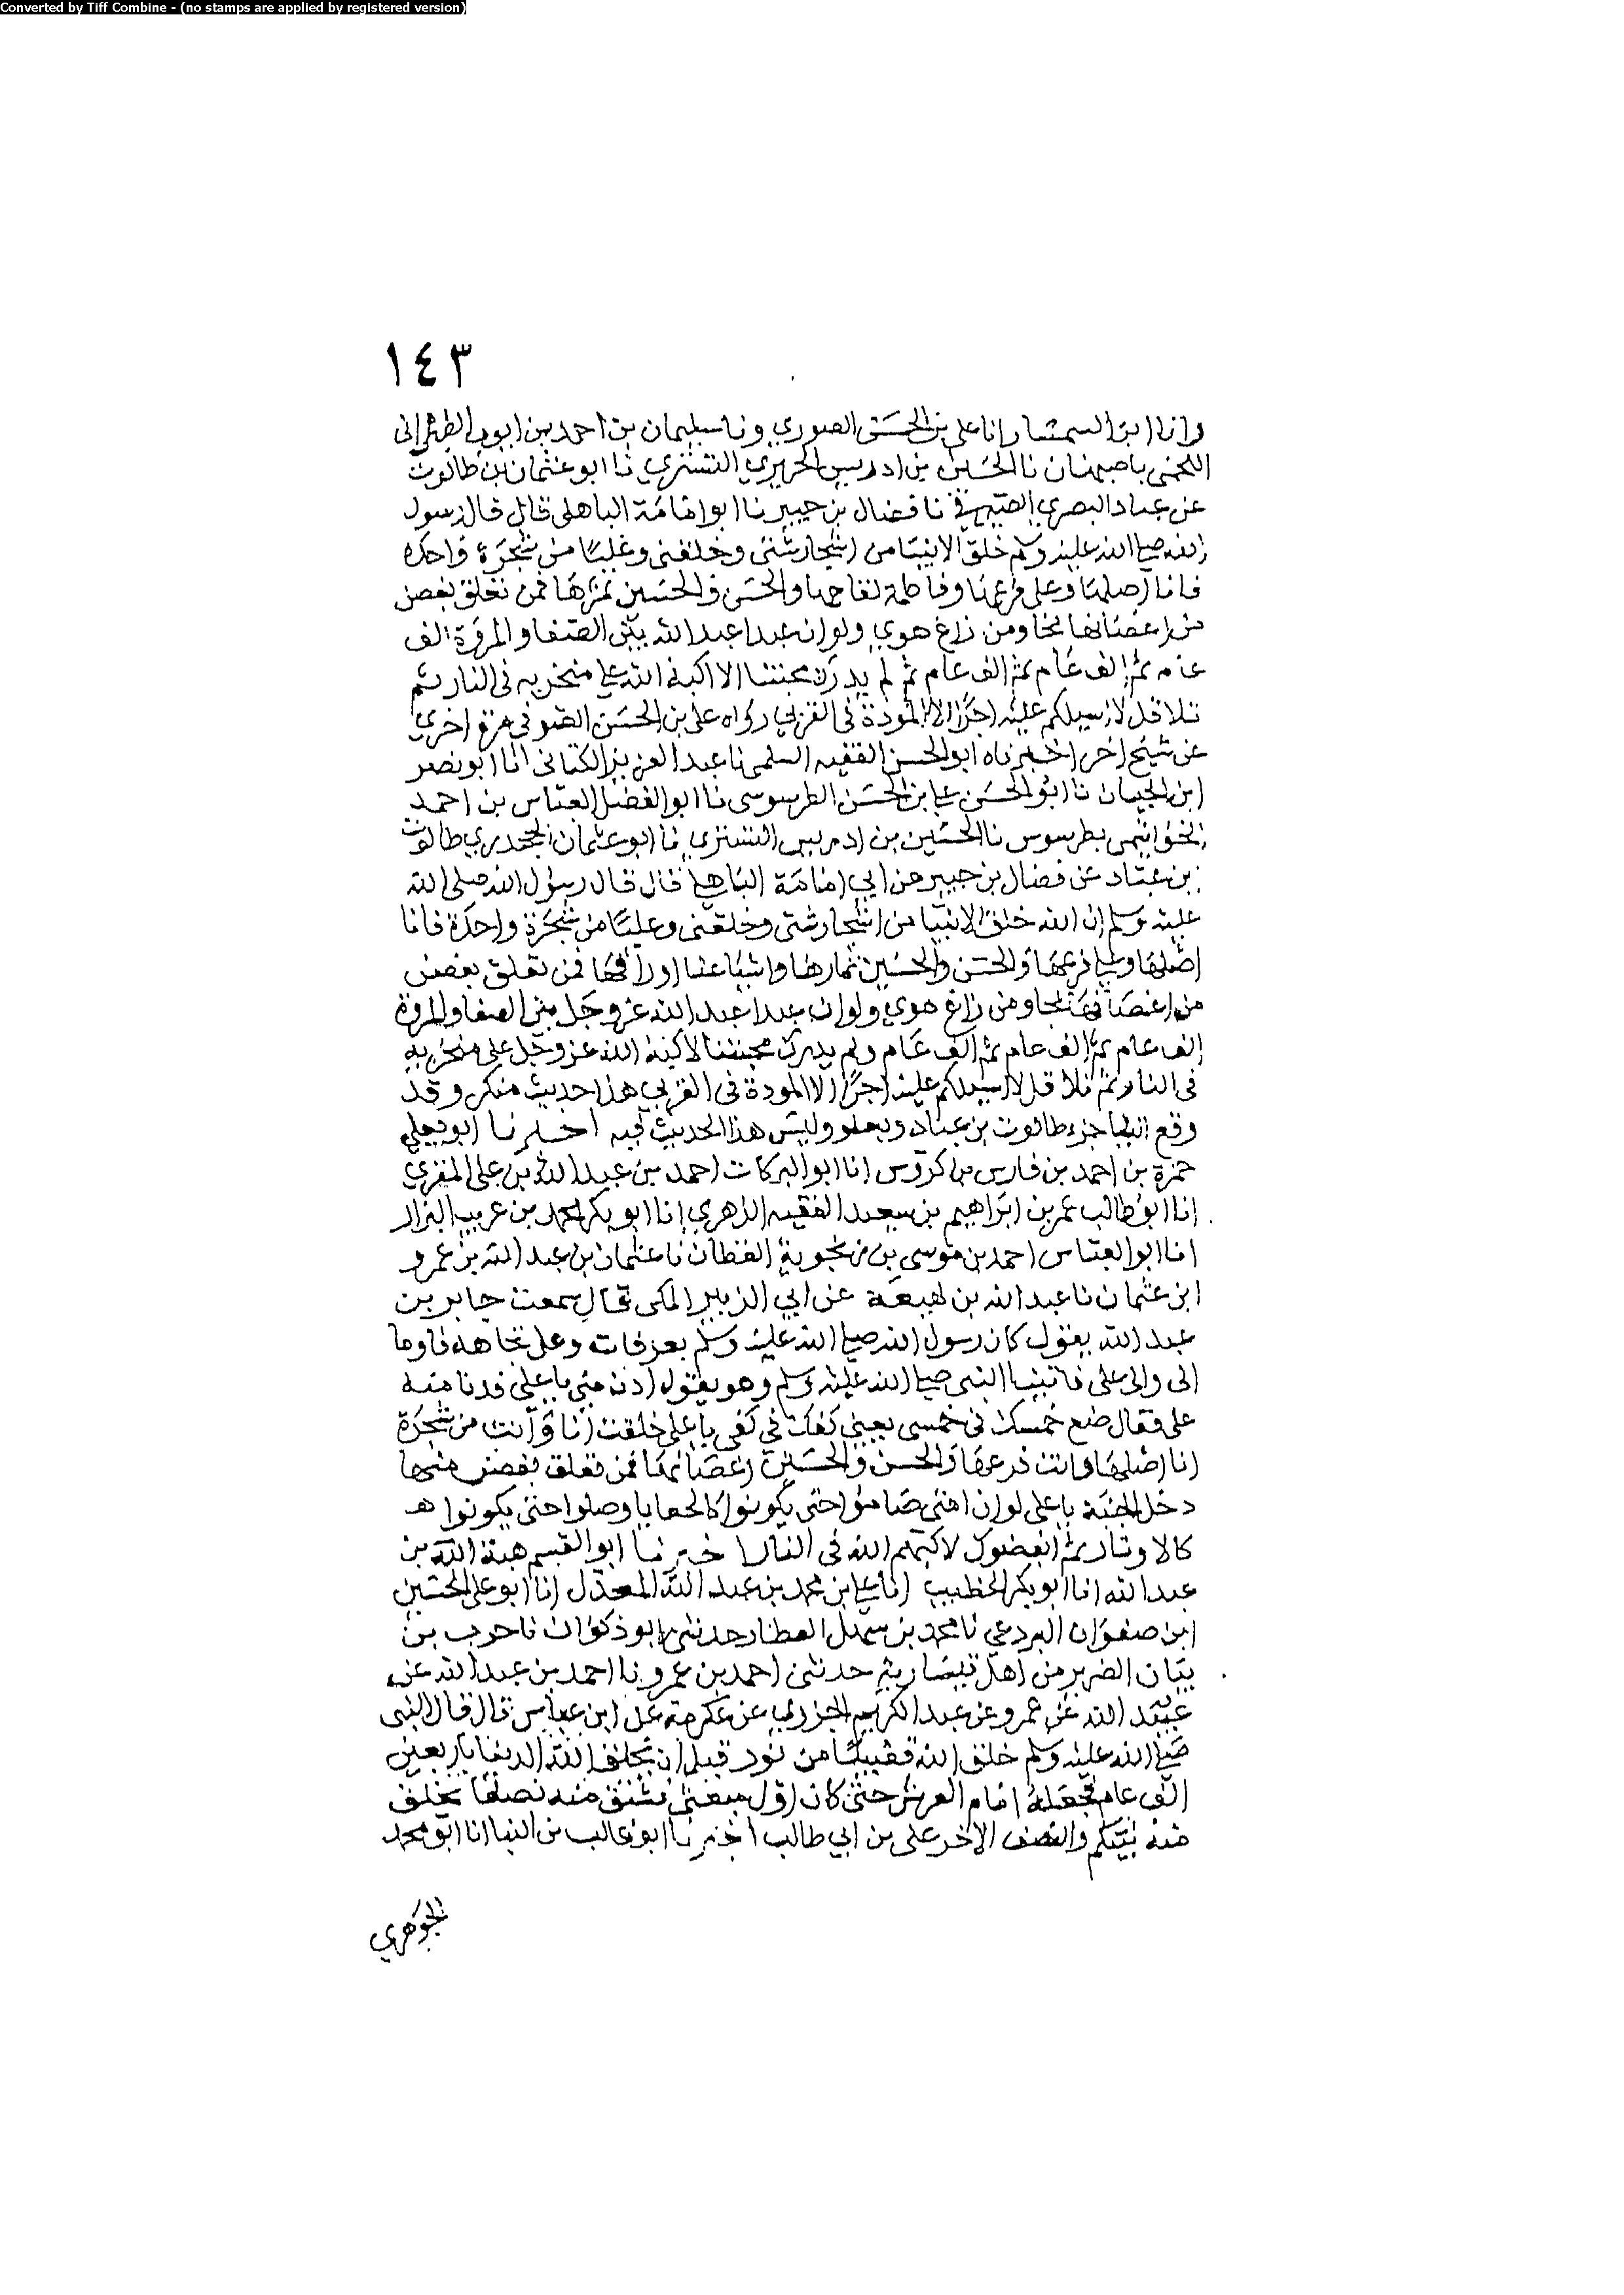 Converted by Tiff Combine - (no stamps are applied by registered version)
١٤٣
وانا ابن السمسار انا علي بن الحسن الصوري ونا سليمان بن احمد بن ايوب الطبراني
اللخمي باصبهان نا الحسين بن ادريس الحريري التستري نا ابو عثمان بن طالوت
عن عباد البصري الصيرفي نا فضال بن جبير نا ابو امامة الباهلي قال قال رسول
الله صلى الله عليه وسلم خلق الانبيا من اشجار شتى وخلقني وعليا من شجرة واحدة
فانا اصلها وعلي فرعها وفاطمة لقاحها والحسن والحسين ثمرها فمن تعلق بغصن
من اغصانها نجا ومن زاغ هوى ولو ان عبدا عبد الله بين الصفا والمروة الف
عام ثم الف عام ثم الف عام ثم لم يدرك محبتنا الا اكبه الله على منخريه في النار ثم
تلا قل لا اسيلكم عليه اجرا الا المودة في القربى رواه علي بن الحسن الصوفي مرة اخرى
عن شيخ اخر اخبرناه ابو الحسن الفقيه السلمي نا عبد العزيز الكتاني انا ابو نصر
ابن الجبان نا ابو الحسن علي بن الحسن الطرسوسي نا ابو الفضل العباس بن احمد
الخواتيمي بطرسوس نا الحسين بن ادريس التستري نا ابو عثمان الجحدري طالوت
بن عباد عن فضال بن جبير عن ابي امامة الباهلي قال قال رسول الله صلى الله
عليه وسلم ان الله خلق الانبيا من اشجار شتى وخلقني وعليا من شجرة واحدة فانا
اصلها وعلي فرعها والحسن والحسين ثمارها واشياعنا اوراقها فمن تعلق بغصن
من اغصانها نجا ومن زاغ هوى ولو ان عبدا عبد الله عز وجل بين الصفا والمروة
الف عام ثم الف عام ثم الف عام ولم يدرك محبتنا لاكبه الله عز وجل على منخريه
في النار ثم تلا قل لا اسيلكم عليه اجرا الا المودة في القربى هذا حديث منكر وقد
وقع الينا جزء طالوت بن عباد وبعلو وليس هذا الحديث فيه اخبرنا ابو يعلى
حمزة بن احمد بن فارس بن كروس انا ابو البركات احمد بن عبد الله بن علي المقري
انا ابو طالب عمر بن ابراهيم بن سعيد الفقيه الزهري انا ابو بكر محمد بن غريب البزار
انا ابو العباس احمد بن موسى بن زنجوية القطان نا عثمان بن عبد الله بن عمرو
ابن عثمان نا عبد الله بن لهيعة عن ابي الزبير المكي قال سمعت جابر بن
عبد الله يقول كان رسول الله صلى الله عليه وسلم بعرفات وعلي تجاهه فاوما
الي والى علي فاتينا النبي صلى الله عليه وسلم وهو يقول ادن مني يا علي فدنا منه
علي فقال ضع خمسك في خمسي يعني كفك في كفي يا علي خلقت انا وانت من شجرة
انا اصلها وانت فرعها والحسن والحسين اغصانها فمن تعلق بغصن منها
دخل الجنة يا علي لو ان امتي صاموا حتى يكونوا كالحنايا وصلوا حتى يكونوا
كالاوتار ثم ابغضوك لاكبهم الله في النار اخبرنا ابو القسم هبة الله بن
عبد الله انا ابو بكر الخطيب انا علي بن محمد بن عبد الله المعدل انا ابو علي الحسين
ابن صفوان البردعي نا محمد بن سهل العطار حدثني ابو ذكوان نا حرب بن
بيان الضرير من اهل قيسارية حدثني احمد بن عمرو نا احمد بن عبد الله عن
عبيد الله عن عمرو عن عبد الكريم الجزري عن عكرمة عن ابن عباس قال قال النبي
صلى الله عليه وسلم خلق الله قضيبا من نور قبل ان يخلق الله الدنيا باربعين
الف عام فجعله امام العرش حتى كان اول مبعثي فشق منه نصفا فخلق
منه نبيكم والنصف الاخر علي بن ابي طالب اخبرنا ابو غالب بن البنا انا ابو محمد
الجوهري